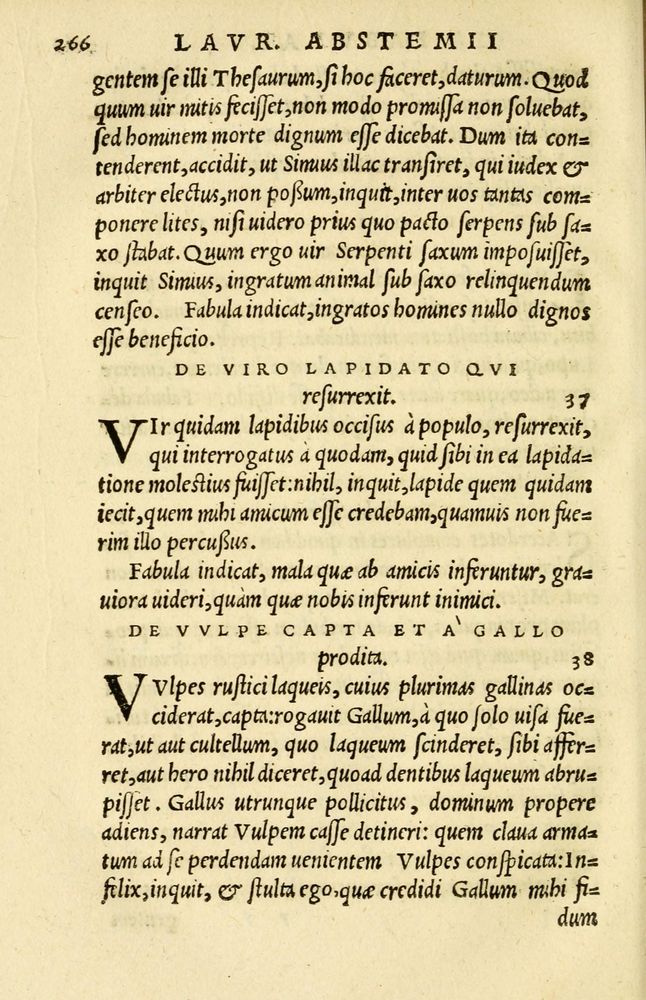 266 LAVR. ABSTEMII
gentem se illi Thesaurum, si hoc faceret, daturum. Quod
quum uir mitis fecisset, non modo promissa non soluebat,
sed hominem morte dignum esse dicebat. Dum ita con=
tenderent, accidit, ut Simius illac transiret, qui iudex &
arbiter electus, non poßum, inquit, inter uos tantas com=
ponere lites, nisi uidero prius quo pacto serpens sub sa=
xo stabat. Quum ergo uir Serpenti saxum imposuisset,
inquit Simius, ingratum animal sub saxo relinquendum
censeo. Fabula indicat, ingratos homines nullo dignos
esse beneficio.
DE VIRO LAPIDATO QVI
resurrexit. 37
VIr quidam lapidibus occisus à populo, resurrexit,
qui interrogatus à quodam, quid sibi in ea lapida=
tione molestius fuisset: nihil, inquit, lapide quem quidam
iecit, quem mihi amicum esse credebam, quamuis non fue=
rim illo percußus.
Fabula indicat, mala quæ ab amicis inferuntur, gra=
uiora uideri, quàm quæ nobis inferunt inimici.
DE VVLPE CAPTA ET A` GALLO
prodita. 38
VVlpes rustici laqueis, cuius plurimas gallinas oc=
ciderat, capta: rogauit Gallum, à quo solo uisa fue=
rat, ut aut cultellum, quo laqueum scinderet, sibi affer=
ret, aut hero nihil diceret, quoad dentibus laqueum abru=
pisset. Gallus utrunque pollicitus, dominum propere
adiens, narrat Vulpem casse detineri: quem claua arma=
tum ad se perdendam uenientem Vulpes conspicata: In=
felix, inquit, & stulta ego, quæ credidi Gallum mihi fi=
dum